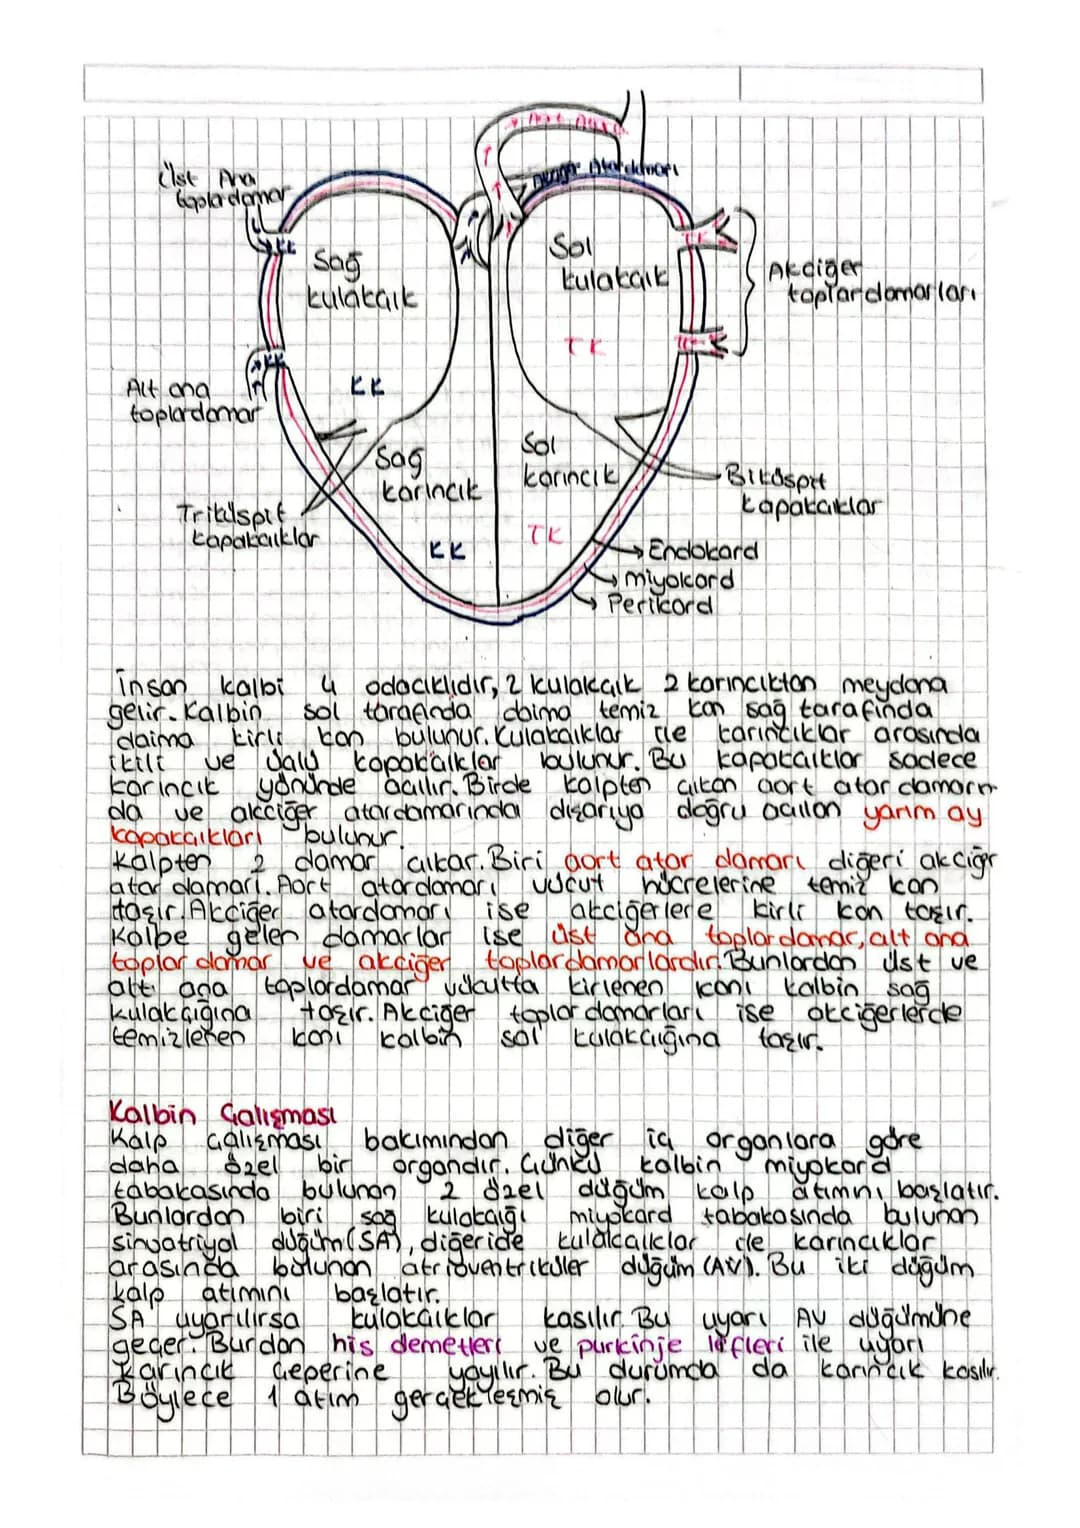 Aort Atar
Üst Ana
toplardamar
Akciğer Atardamarı
KK
TK
Sağ
kulakçık
Sol
kulakçık
Akciğer
toplardamarları
TK
TK
KK
KK
Alt ana
toplardamar
Sağ
karıncık
Sol
karıncık
Biküspit
kapakçıklar
Triküspit
kapakçıklar
KK
TK
Endokard
miyokard
Perikard
İnsan kalbi 4 odacıklıdır, 2 kulakçık 2 karıncıktan meydana
gelir. Kalbin sol tarafında daima temiz kan sağ tarafında
daima kirli kan bulunur. Kulakçıklar ile karıncıklar arasında
ikili ve üçlü kapakçıklar bulunur. Bu kapakçıklar sadece
karıncık yönünde açılır. Birde kalpten çıkan aort atar damarın
da ve akciğer atardamarında dışarıya doğru açılan yarım ay
kapakçıkları bulunur.
Kalpten 2 damar çıkar. Biri aort atar damarı diğeri akciğr
atar damarı. Aort atardamarı vücut hücrelerine temiz kan
taşır. Akciğer atardamarı ise akciğerlere kirli kan taşır.
Kalbe gelen damarlar ise üst ana toplardamar, alt ana
toplar damar ve akciğer toplardamarlardır. Bunlardan üst ve
alt ana toplardamar vücutta kirlenen kanı kalbin sağ
kulakçığına taşır. Akciğer toplar damarları ise akciğerlerde
temizlenen kanı kalbin sol kulakçığına taşır.
Kalbin Çalışması
Kalp çalışması bakımından diğer iç organlara göre
daha özel bir organdır. Çünkü kalbin miyokard
tabakasında bulunan 2 özel düğüm kalp atımını başlatır.
Bunlardan biri sağ kulakçığı miyokard tabakasında bulunan
sinoatriyal düğüm (SA), diğeride kulakcıklar ile karıncıklar
arasında bulunan atrioventriküler düğüm (AV). Bu iki düğüm
kalp atımını başlatır.
SA uyarılırsa kulakcıklar kasılır. Bu uyarı AV düğümüne
geçer. Burdan his demetleri ve purkinje lifleri ile uyarı
karıncık çeperine yayılır. Bu durumda da karıncık kasılır.
Böylece 1 atım gerçekleşmiş olur.